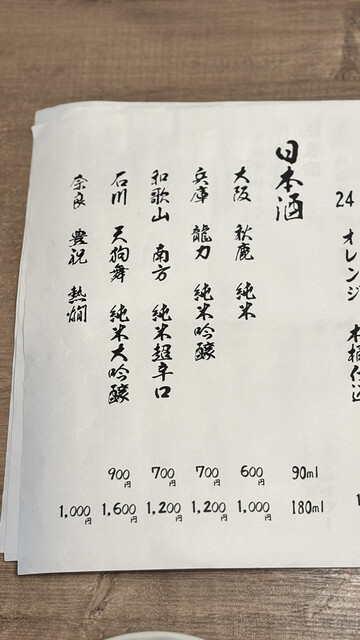 24
オレンジ 木桶仕込
日本酒 90ml 180ml
大阪 秋鹿 純米 600円 1,000円
兵庫 龍力 純米吟醸 700円 1,200円
和歌山 南方 純米超辛口 700円 1,200円
石川 天狗舞 純米大吟醸 900円 1,600円
奈良 豊祝 熱燗 1,000円